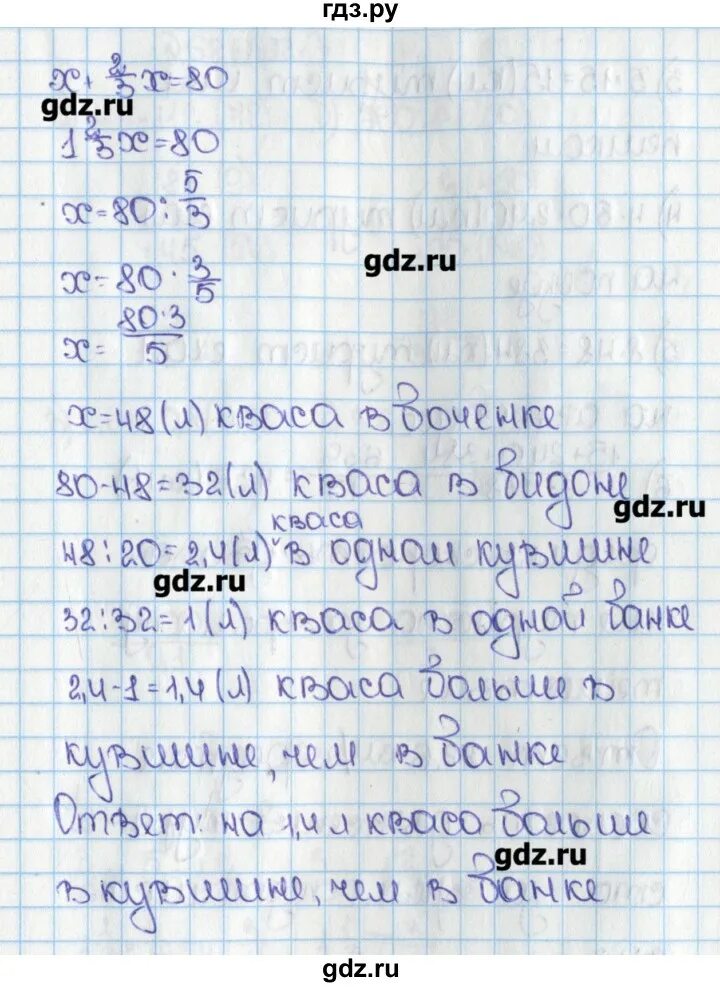 гдз.ру
x + 2/3 x = 80
gdz.ru
1 2/3 x = 80
x = 80 : 5/3
gdz.ru
x = 80 · 3/5
x = 80·3/5
x = 48 (л) кваса в боченке
80 - 48 = 32 (л) кваса в бидоне
gdz.ru
кваса
48 : 20 = 2,4 (л) ˅ в одном кувшине
gdz.ru
32 : 32 = 1 (л) кваса в одной банке
2,4 - 1 = 1,4 (л) кваса больше в
кувшине, чем в банке
Ответ: на 1,4 л кваса больше
gdz.ru
в кувшине, чем в банке
gdz.ru